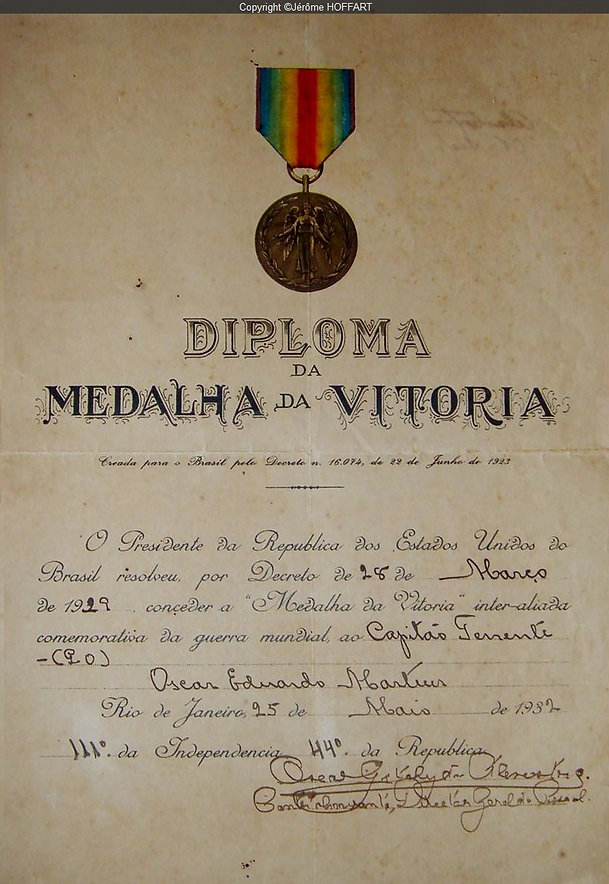 Copyright ©Jérôme HOFFART
DIPLOMA
DA
MEDALHA DA VITORIA
Creada para o Brasil pelo Decreto n. 16.074, de 22 de Junho de 1923
O Presidente da Republica dos Estados Unidos do
Brasil resolveu, por Decreto de 28 de Março
de 1929, conceder a "Medalha da Vitoria" inter-aliada
comemorativa da guerra mundial, ao Capitão Tenente
Oscar Eduardo Martins
Rio de Janeiro, 25 de Maio de 1932
111º. da Independencia 44º. da Republica
Oscar
Geral do Pessoal.